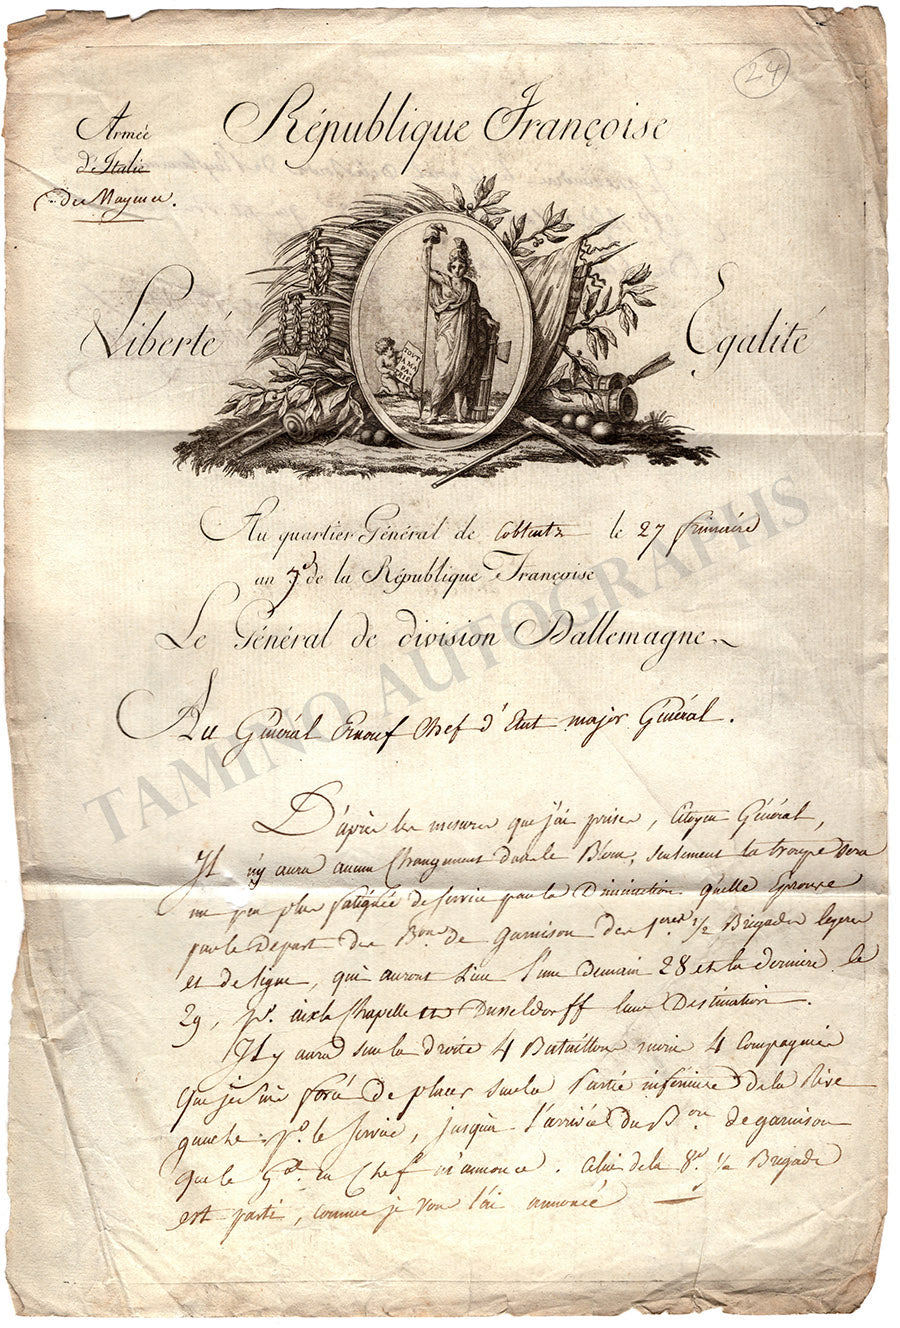 24
République Françoise
Armée
d'Italie
de Mayence.
Liberté
Egalité
TOUT
A MA
PA
TRIE
Au quartier Général de Coblentz le 27 frimaire
an 7e de la République Françoise
Le Général de division Dallemagne
Au Général Ernouf Chef d'Etat major Général.
D'après les mesures que j'ai prises, Citoyen Général,
Il n'y aura aucun Changement dans le seulement la troupe sera
un peu plus fatiguée de service par la Diminution qu'elle Eprouve
par le Départ des Bons de garnison des 1res 1/2 Brigades legere
et de ligne, qui auront l'une demain 28 et la derniere le
29, pr. aix la Chapelle et Dusseldorff leur Destination.
Il y aura sur la droite 4 Bataillons moins 4 Compagnies
que je suis forcé de placer sur la Partie inférieure de la Rive
gauche pr. le service, jusqu'à l'arrivée du Bon de garnison
que le Gal. en Chef m'annonce. Celui de la 8e. 1/2 Brigade
est parti, comme je vous l'ai annoncé
TAMINO AUTOGRAPHS